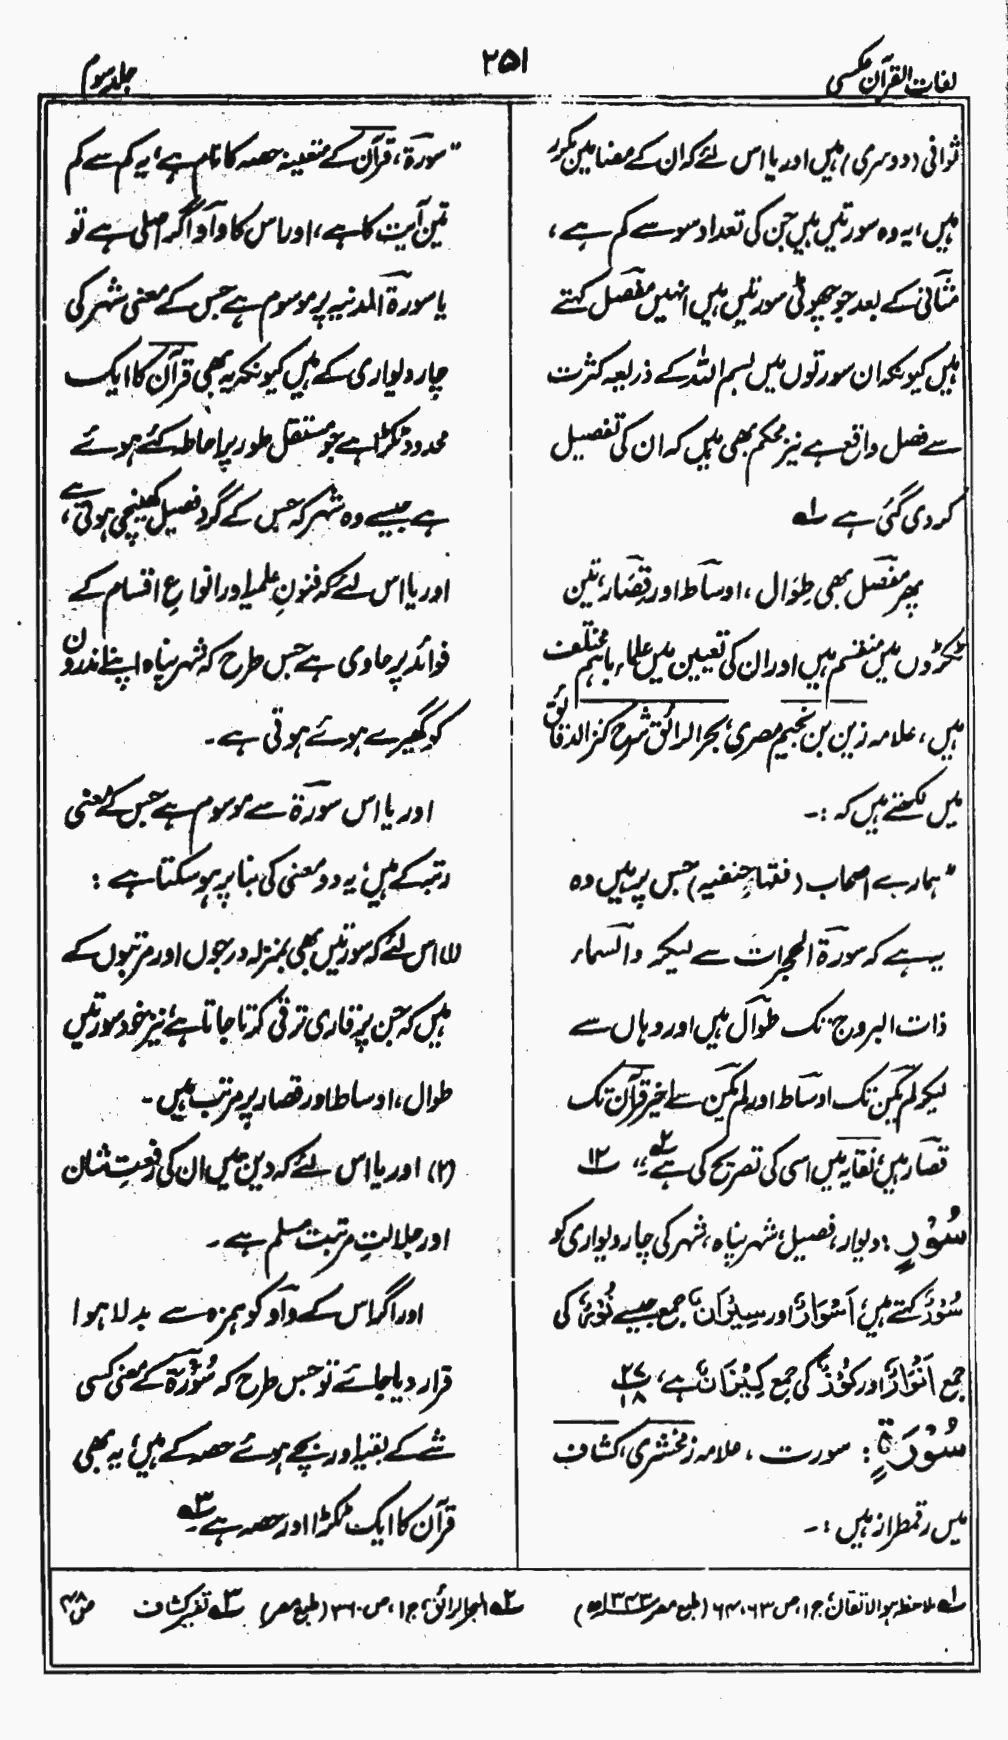 لغات القرآن عکسی
۲۵۱
جلد سوم
ثوانی (دوسری) ہیں اور یا اس لئے کہ ان کے مضامین مکرر
ہیں، یہ وہ سورتیں ہیں جن کی تعداد سو سے کم ہے،
مثانی کے بعد جو چھوٹی سورتیں ہیں انہیں مفصل کہتے
ہیں کیونکہ ان سورتوں میں بسم اللہ کے ذریعہ کثرت
سے فصل واقع ہے نیز محکم بھی ہیں کہ ان کی تفصیل
کر دی گئی ہے ۱؎
پھر مفصل بھی طِوَال، اوساط اور قِصَار، تین
ٹکڑوں میں منقسم ہیں اور ان کی تعیین میں علماء باہم مختلف
ہیں، علامہ زین بن نجیم مصری، بحر الرائق شرح کنز الدقائق
میں لکھتے ہیں کہ :۔
"ہمارے اصحاب (فقہاءِ حنفیہ) جس پر ہیں وہ
یہ ہے کہ سورۃ الحجرات سے لیکر والسماء
ذات البروج تک طوال ہیں اور وہاں سے
لیکر لم یکن تک اوساط اور لم یکن سے اخیر قرآن تک
قصار ہیں، نقایہ میں اسی کی تصریح کی ہے ۲؎"، ۱۲
سُوْرٍ : دیوار، فصیل، شہر پناہ، شہر کی چار دیواری کو
سُوْرٌ کہتے ہیں، اَسْوَارٌ اور سِیْرَانٌ جمع جیسے نُوْرٌ کی
جمع اَنْوَارٌ اور کُوْزٌ کی جمع کِیْزَانٌ ہے، ۲۷ ۱۸
سُوْرَۃٍ : سورت، علامہ زمخشری، کشاف
میں رقمطراز ہیں :۔
"سورۃ، قرآن کے متعینہ حصہ کا نام ہے، یہ کم سے کم
تین آیت کا ہے، اور اس کا واو اگر اصلی ہے تو
یا سورۃ المدنیہ پر موسوم ہے جس کے معنی شہر کی
چار دیواری کے ہیں کیونکہ یہ بھی قرآن کا ایک
محدود ٹکڑا ہے جو مستقل طور پر احاطہ کئے ہوئے
ہے جیسے وہ شہر کہ جس کے گرد فصیل کھینچی ہوتی ہے،
اور یا اس لئے کہ فنونِ علمیہ اور انواعِ اقسام کے
فوائد پر حاوی ہے جس طرح کہ شہر پناہ اپنے اندرون
کو گھیرے ہوئے ہوتی ہے۔
اور یا اس سورۃ سے موسوم ہے جس کے معنی
رتبہ کے ہیں، یہ دو معنی کی بنا پر ہو سکتا ہے :
(۱) اس لئے کہ سورتیں بھی بمنزلہ درجوں اور مرتبوں کے
ہیں کہ جن پر قاری ترقی کرتا جاتا ہے، نیز خود سورتیں
طوال، اوساط اور قصار پر مرتب ہیں۔
(۲) اور یا اس لئے کہ دین میں ان کی رفعتِ شان
اور جلالتِ مرتبت مسلم ہے۔
اور اگر اس کے واو کو ہمزہ سے بدلا ہوا
قرار دیا جائے تو جس طرح کہ سُؤْرَۃٌ کے معنی کسی
شے کے بقیہ اور بچے ہوئے حصہ کے ہیں، یہ بھی
قرآن کا ایک ٹکڑا اور حصہ ہے ۳؎
۱؎ ملاحظہ ہو الاتقان، ج۱، ص ۶۳، ۶۴ (طبع مصر ۱۳۴۳ھ) ۲؎ البحر الرائق، ج۱، ص ۳۶۰ (طبع مصر) ۳؎ تفسیر کشاف ص ۴۸